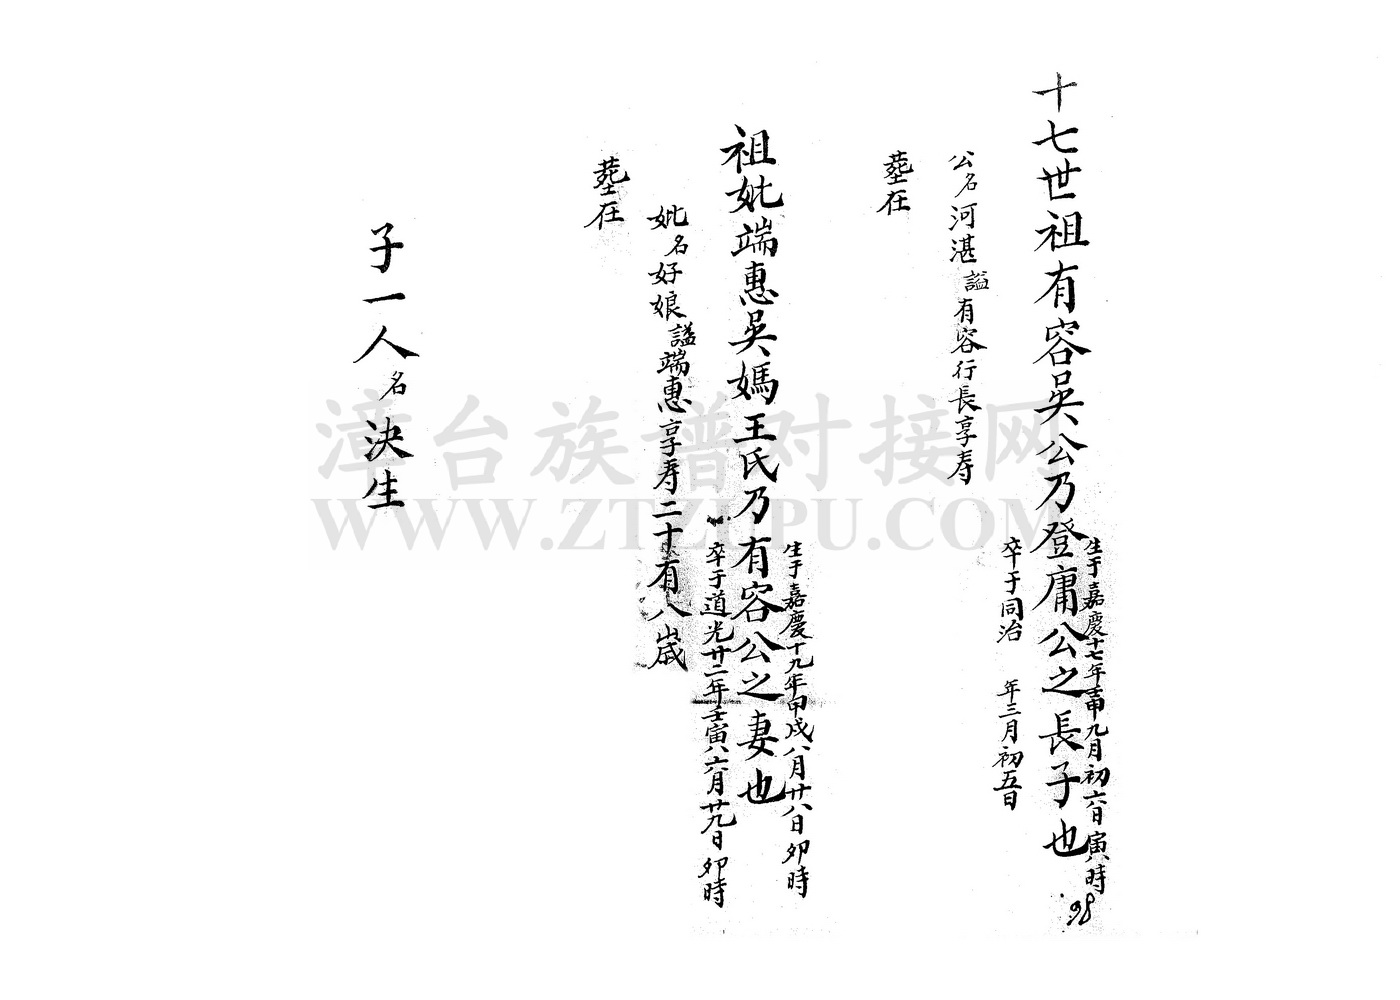 十七世祖有容吳公乃登庸公之長子也
生于嘉慶十七年壬申九月初六日寅時
卒于同治 年三月初五日
公名河湛謚有容行長享寿
塟在
祖妣端惠吳媽王氏乃有容公之妻也
生于嘉慶十九年甲戌八月廿八日卯時
卒于道光廿二年壬寅六月廿九日卯時
妣名好娘謚端惠享寿二十有八歲
塟在
子一人名決生
98
漳台族谱对接网
WWW.ZTZUPU.COM